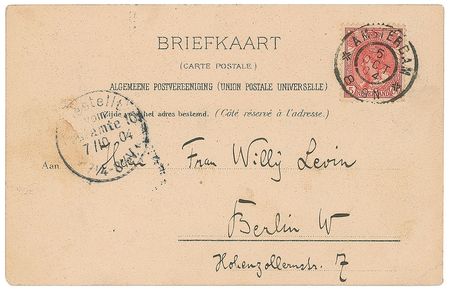 BRIEFKAART
(CARTE POSTALE)
ALGEMEENE POSTVEREENIGING (UNION POSTALE UNIVERSELLE)
Zijde het adres bestemd. (Côté réservé à l'adresse.)
AMSTERDAM
5
OCT
4
8
Bestellt
vom
Amte 10
7/10 04
N
Aan
Frau Willy Levin
Berlin W
Hohenzollernstr. 7